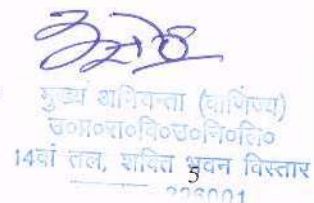 मुख्य अभियन्ता (वाणिज्य)
उ०प्र०रा०वि०उ०नि०लि०
14वां तल, शक्ति भवन विस्तार
5
226001